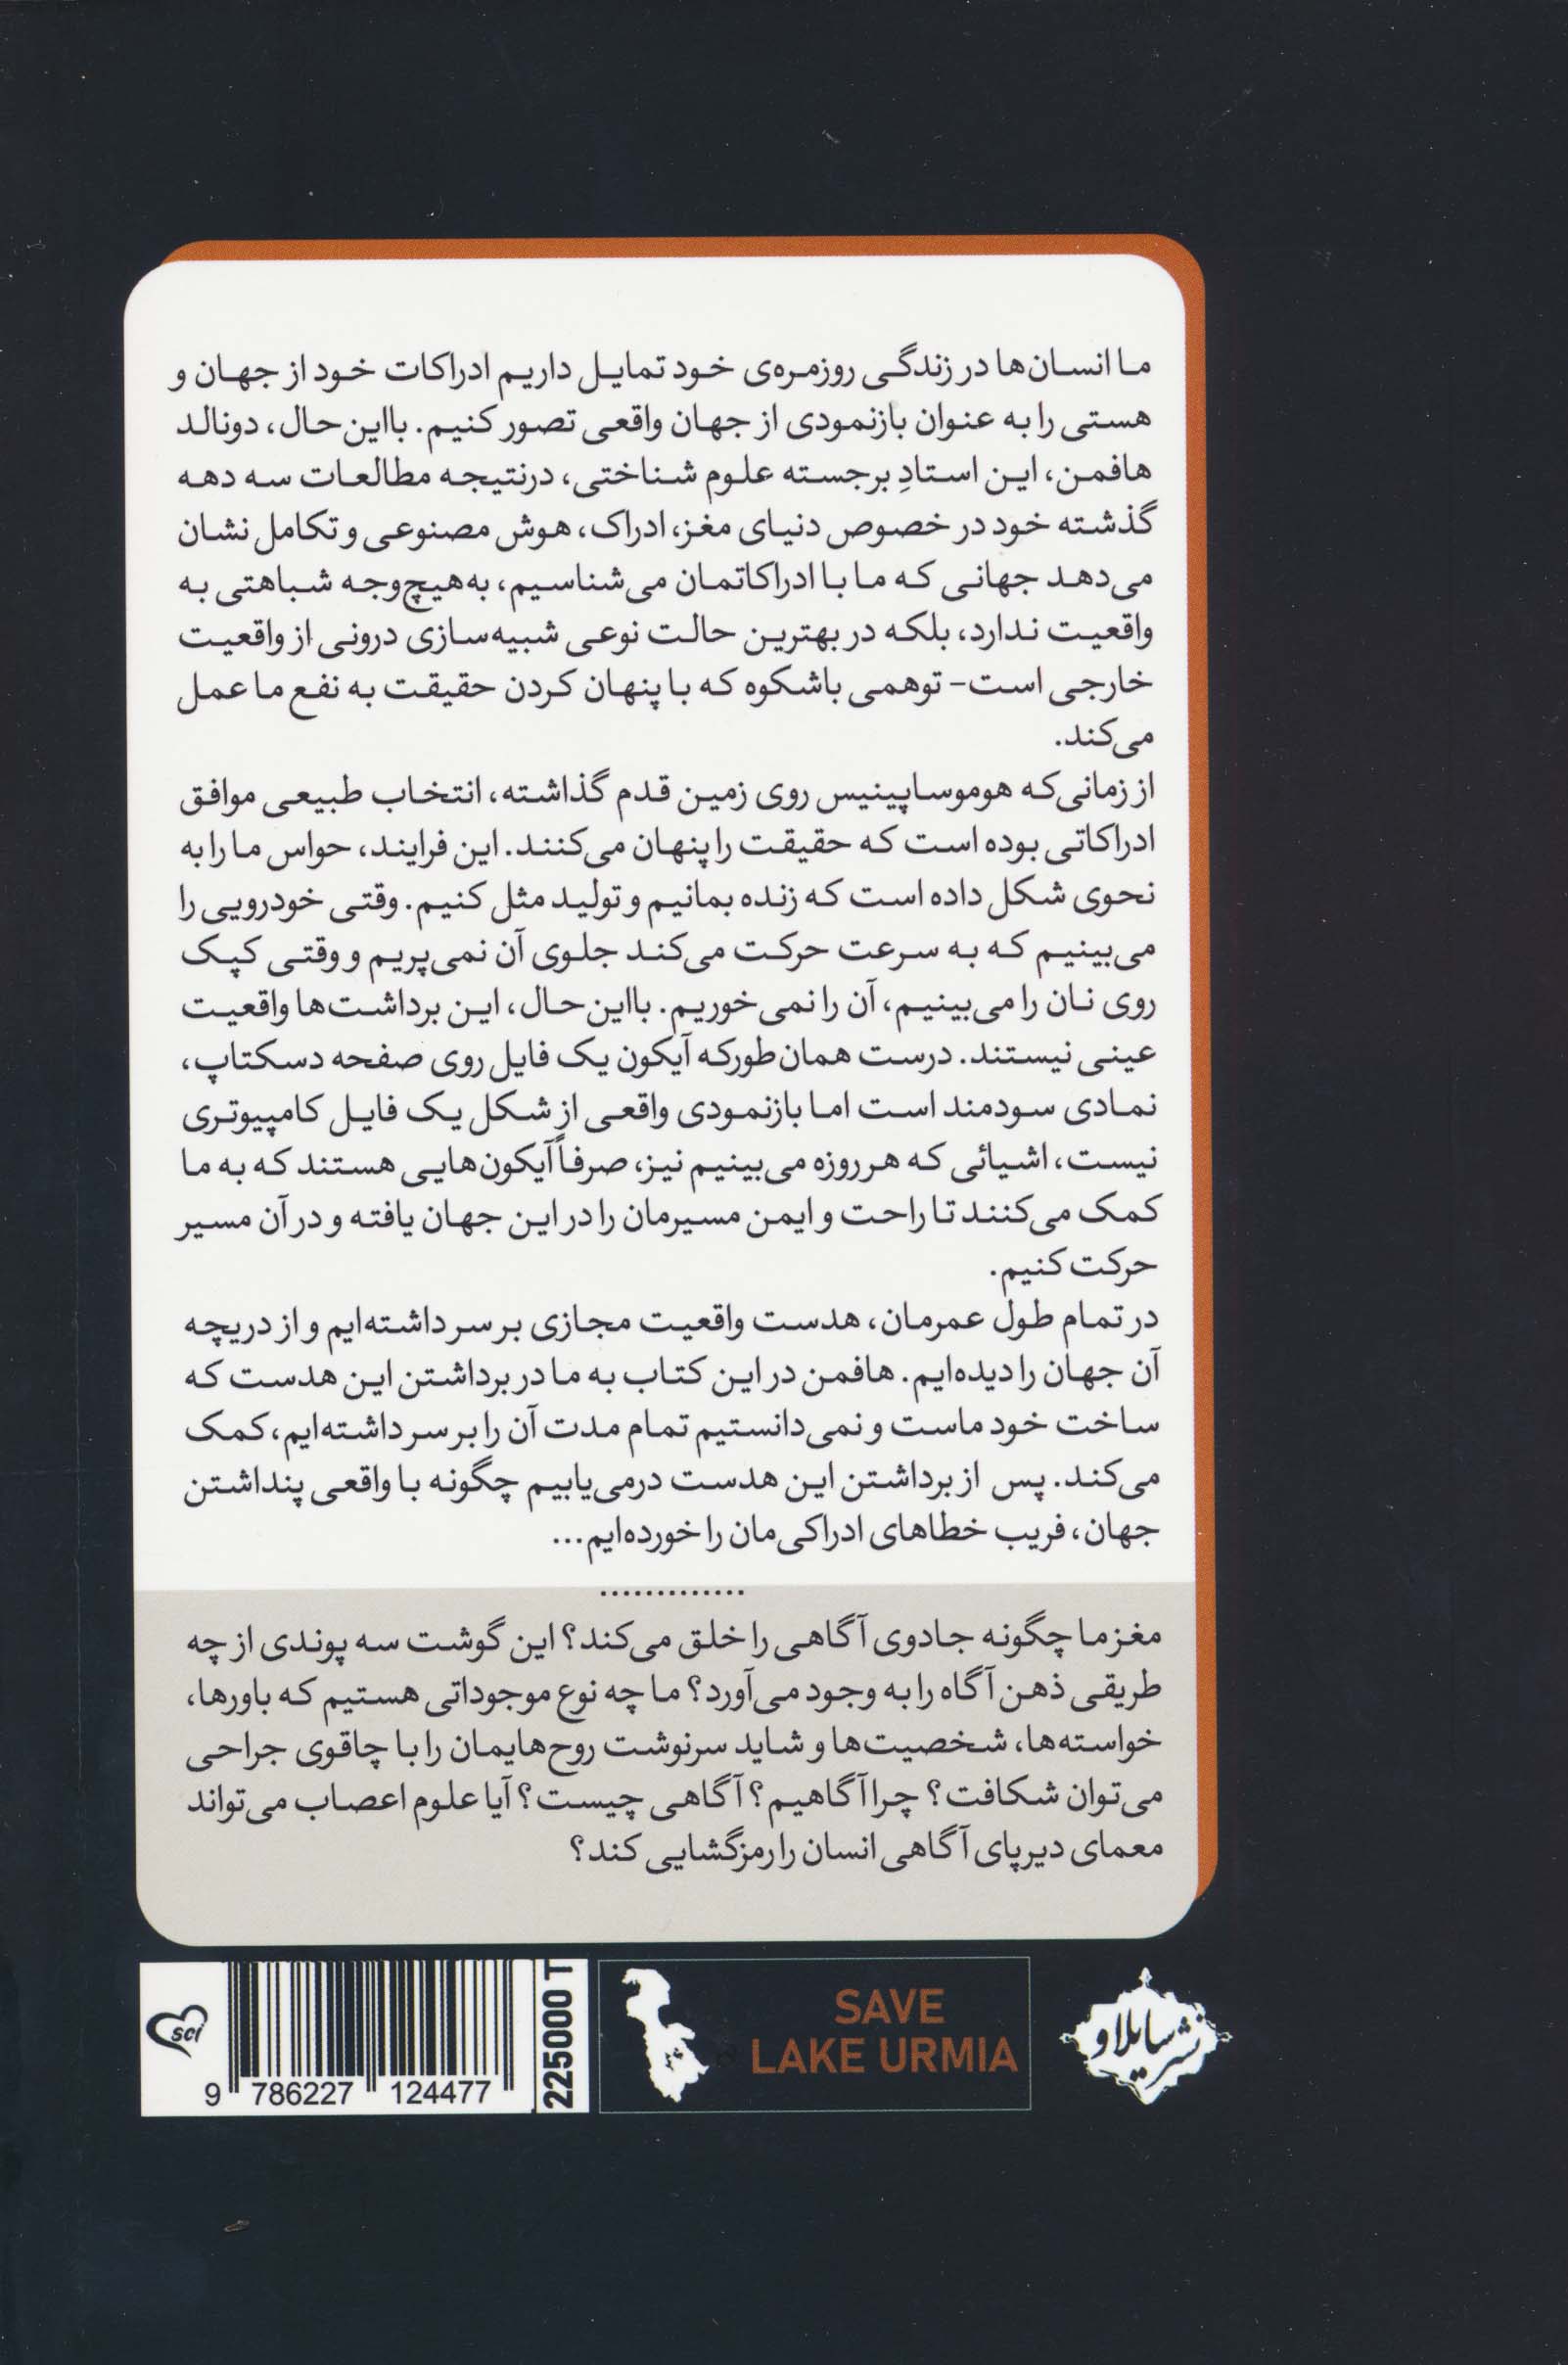 ما انسان‌ها در زندگی روزمره‌ی خود تمایل داریم ادراکات خود از جهان و
هستی را به عنوان بازنمودی از جهان واقعی تصور کنیم. بااین‌حال، دونالد
هافمن، این استادِ برجسته علوم شناختی، درنتیجه مطالعات سه دهه
گذشته خود در خصوص دنیای مغز، ادراک، هوش مصنوعی و تکامل نشان
می‌دهد جهانی که ما با ادراکاتمان می‌شناسیم، به‌هیچ‌وجه شباهتی به
واقعیت ندارد، بلکه در بهترین حالت نوعی شبیه‌سازی درونی از واقعیت
خارجی است- توهمی باشکوه که با پنهان کردن حقیقت به نفع ما عمل
می‌کند.
از زمانی‌که هوموساپینیس روی زمین قدم گذاشته، انتخاب طبیعی موافق
ادراکاتی بوده است که حقیقت را پنهان می‌کنند. این فرایند، حواس ما را به
نحوی شکل داده است که زنده بمانیم و تولید مثل کنیم. وقتی خودرویی را
می‌بینیم که به سرعت حرکت می‌کند جلوی آن نمی‌پریم و وقتی کپک
روی نان را می‌بینیم، آن را نمی‌خوریم. بااین‌حال، این برداشت‌ها واقعیت
عینی نیستند. درست همان‌طورکه آیکون یک فایل روی صفحه دسکتاپ،
نمادی سودمند است اما بازنمودی واقعی از شکل یک فایل کامپیوتری
نیست، اشیائی که هر روزه می‌بینیم نیز، صرفاً آیکون‌هایی هستند که به ما
کمک می‌کنند تا راحت و ایمن مسیرمان را در این جهان یافته و در آن مسیر
حرکت کنیم.
در تمام طول عمرمان، هدست واقعیت مجازی بر سر داشته‌ایم و از دریچه
آن جهان را دیده‌ایم. هافمن در این کتاب به ما در برداشتن این هدست که
ساخت خود ماست و نمی‌دانستیم تمام مدت آن را بر سر داشته‌ایم، کمک
می‌کند. پس از برداشتن این هدست درمی‌یابیم چگونه با واقعی پنداشتن
جهان، فریب خطاهای ادراکی‌مان را خورده‌ایم...
.............
مغز ما چگونه جادوی آگاهی را خلق می‌کند؟ این گوشت سه پوندی از چه
طریقی ذهن آگاه را به وجود می‌آورد؟ ما چه نوع موجوداتی هستیم که باورها،
خواسته‌ها، شخصیت‌ها و شاید سرنوشت روح‌هایمان را با چاقوی جراحی
می‌توان شکافت؟ چرا آگاهیم؟ آگاهی چیست؟ آیا علوم اعصاب می‌تواند
معمای دیرپای آگاهی انسان را رمزگشایی کند؟
نشر سایلاو
SAVE
LAKE URMIA
225000 T
sci
9 786227 124477